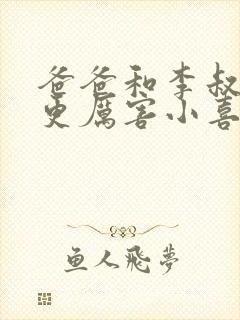 爸爸和李叔
更厲害小喜
鱼人飛夢